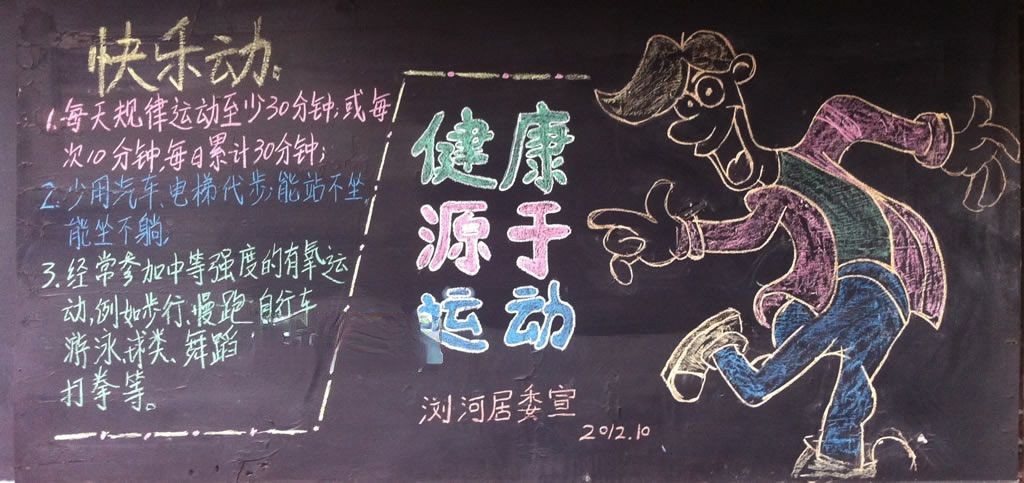 快乐动。
1.每天规律运动至少30分钟;或每
次10分钟,每日累计30分钟;
2.少用汽车、电梯代步;能站不坐,
能坐不躺,
3.经常参加中等强度的有氧运
动,例如步行、慢跑 自行车
游泳、球类、舞蹈
打拳等。
健康
源于
运动
浏河居委宣
2012.10